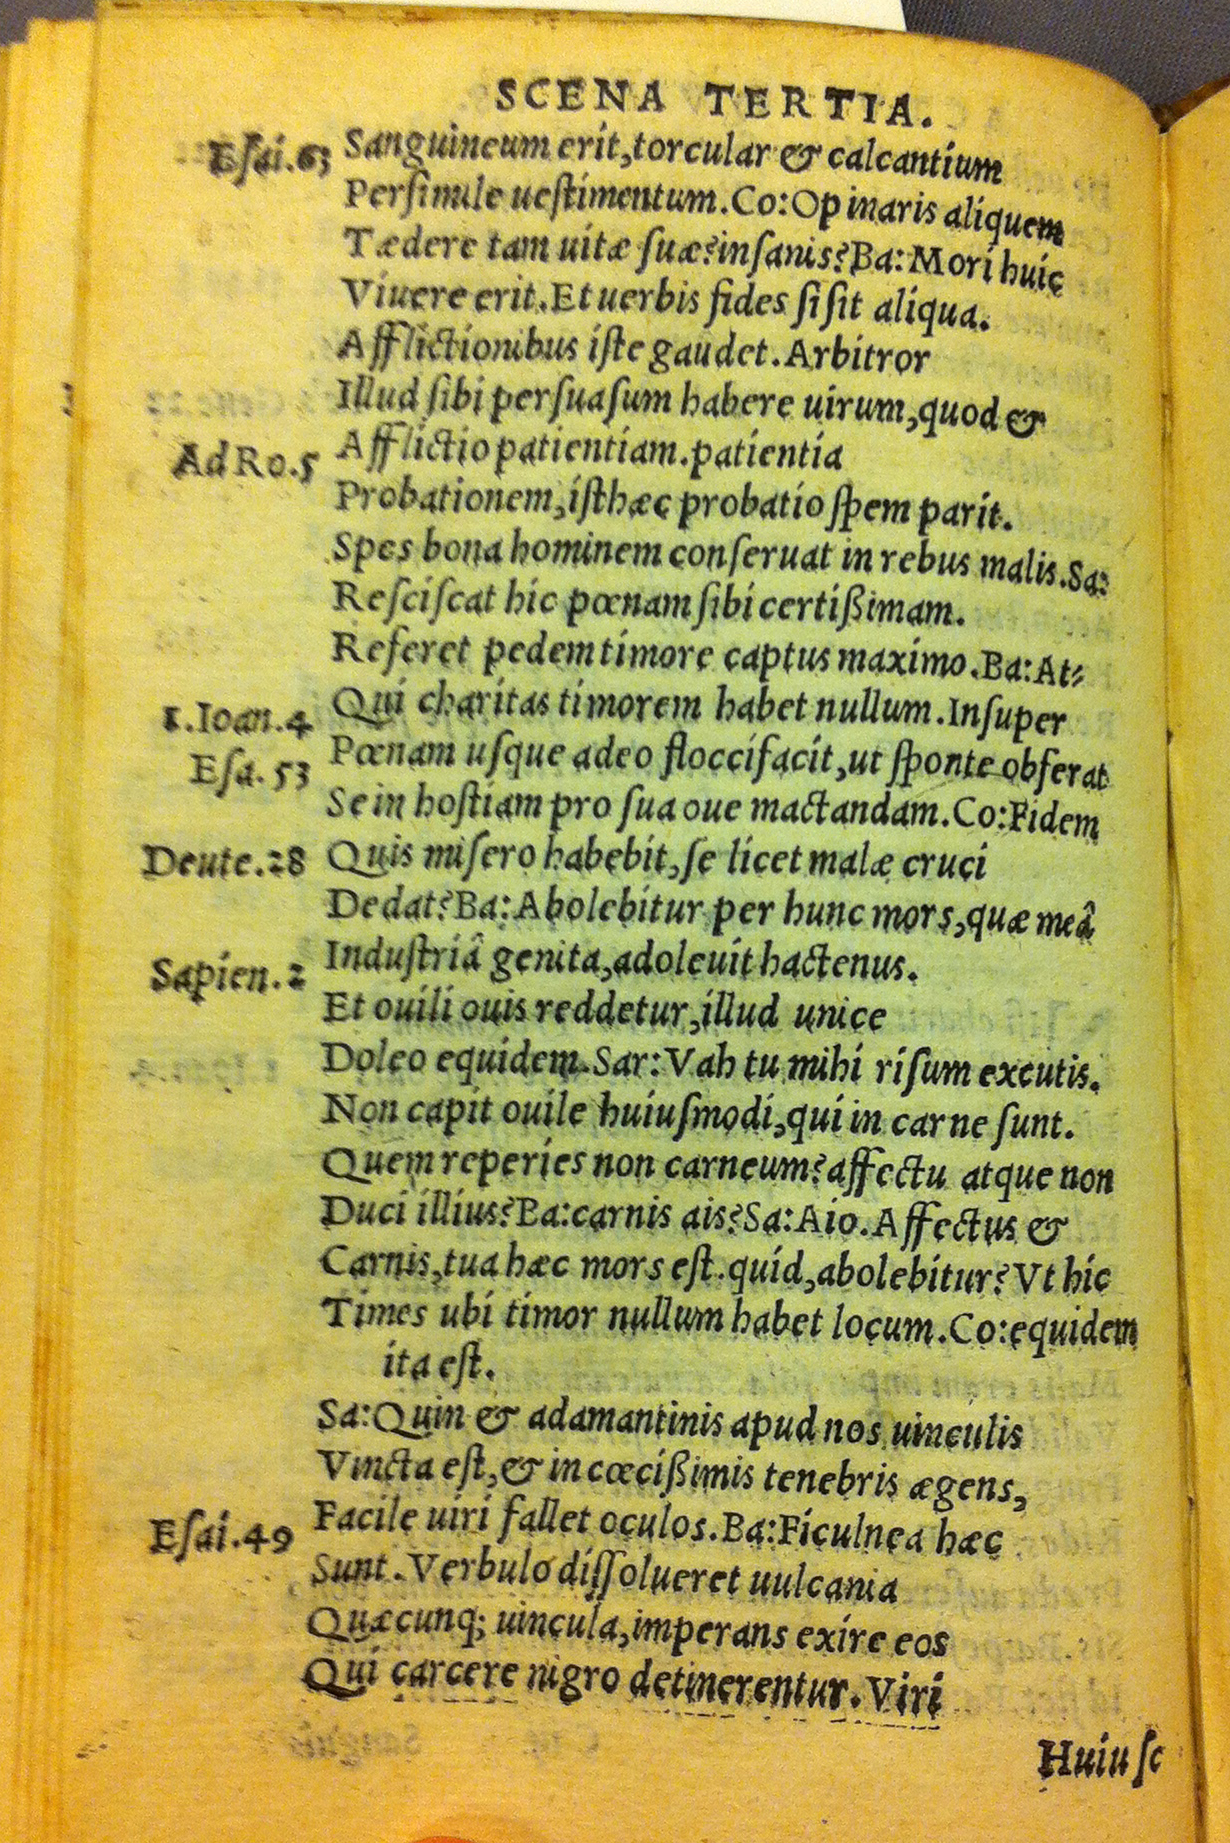 SCENA TERTIA.
Esai.63 Sanguineum erit,torcular & calcantium
Persimile uestimentum.Co:Opinaris aliquem
Tædere tam uitæ suæ?insanis?Ba:Mori huic
Viuere erit.Et uerbis fides si sit aliqua.
Afflictionibus iste gaudet.Arbitror
Illud sibi persuasum habere uirum,quod &
Ad Ro.5 Afflictio patientiam.patientia
Probationem,isthæc probatio spem parit.
Spes bona hominem conseruat in rebus malis.Sa:
Resciscat hic pœnam sibi certißimam.
Referet pedem timore captus maximo.Ba:At⸗
1.Ioan.4 Qui charitas timorem habet nullum.Insuper
Esa.53 Pœnam usque adeo floccifacit,ut sponte obferat
Se in hostiam pro sua oue mactandam.Co:Fidem
Deute.28 Quis misero habebit,se licet malæ cruci
Dedat?Ba:Abolebitur per hunc mors,quæ meâ
Sapien.2 Industriâ genita,adoleuit hactenus.
Et ouili ouis reddetur,illud unice
Doleo equidem.Sar:Vah tu mihi risum excutis.
Non capit ouile huiusmodi,qui in carne sunt.
Quem reperies non carneum?affectu atque non
Duci illius?Ba:carnis ais?Sa:Aio.Affectus &
Carnis,tua hæc mors est.quid,abolebitur?Vt hic
Times ubi timor nullum habet locum.Co:equidem
ita est.
Sa:Quin & adamantinis apud nos uinculis
Vincta est,& in cœcißimis tenebris ægens,
Esai.49 Facile uiri fallet oculos.Ba:Ficulnea hæc
Sunt.Verbulo dissolueret uulcania
Quæcunq; uincula,imperans exire eos
Qui carcere nigro detinerentur.Viri
Huiusc